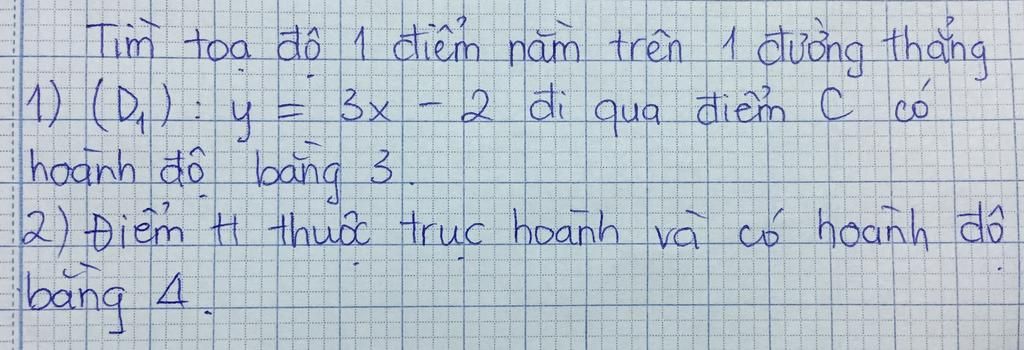 Tìm toạ độ 1 điểm nằm trên 1 đường thẳng
1) (D₁) : y = 3x - 2 đi qua điểm C có
hoành độ bằng 3.
2) Điểm H thuộc trục hoành và có hoành độ
bằng 4.